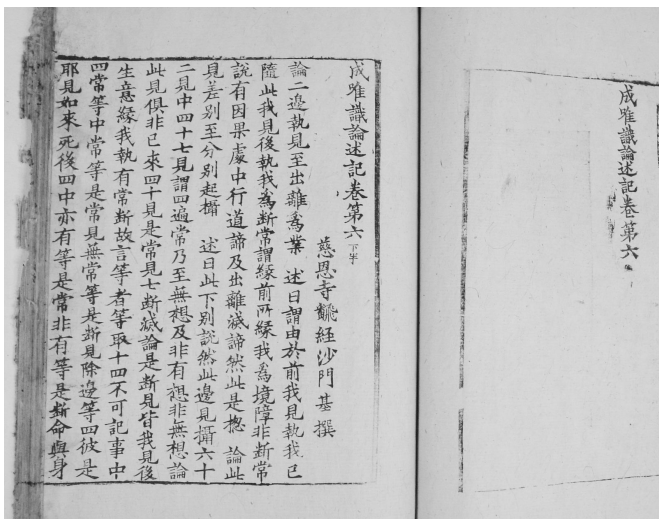 成唯識論述記卷第六
成唯識論述記卷第六下半
慈恩寺飜經沙門基撰
論二邊執見至出離為業 述曰謂由於前我見執我已
隨此我見後執我為斷常謂緣前所緣我為境障非斷常
說有因果處中行道諦及出離滅諦然此是揔 論此
見差別至分別起攝 述曰此下別說然此邊見攝六十
二見中四十七見謂四遍常乃至無想及非有想非無想論
此見俱非已來四十見是常見七斷滅論是斷見皆我見後
生意緣我執有常斷故言等者等取十四不可記事中
四常等中常等是常見無常等是斷見除邊等四彼是
耶見如來死後四中亦有等是常非有等是斷命與身